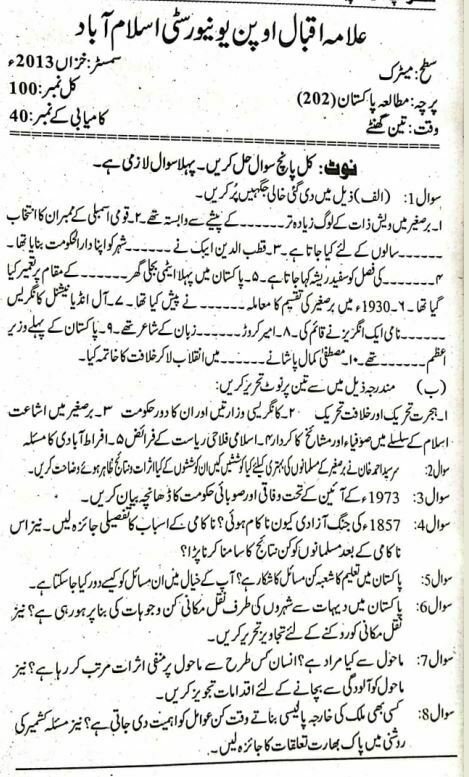 علامہ اقبال اوپن یونیورسٹی اسلام آباد
سطح: میٹرک سمسٹر: خزاں 2013ء
پرچہ: مطالعہ پاکستان (202) کل نمبر: 100
وقت: تین گھنٹے کامیابی کے نمبر: 40
نوٹ: کل پانچ سوال حل کریں۔ پہلا سوال لازمی ہے۔
سوال1: (الف) ذیل میں دی گئی خالی جگہیں پُر کریں۔
۱۔ برصغیر میں ویش ذات کے لوگ زیادہ تر ۔۔۔۔۔۔ کے پیشے سے وابستہ تھے۔ ۲۔ قومی اسمبلی کے ممبران کا انتخاب
۔۔۔۔۔۔ سالوں کے لئے کیا جاتا ہے۔ ۳۔ قطب الدین ایبک نے ۔۔۔۔۔۔ شہر کو اپنا دارالحکومت بنایا تھا۔
۴۔ ۔۔۔۔۔۔ کی فصل کو سفید ریشہ کہا جاتا ہے۔ ۵۔ پاکستان میں پہلا ایٹمی بجلی گھر ۔۔۔۔۔۔ کے مقام پر تعمیر کیا
گیا تھا۔ ۶۔ 1930ء میں برصغیر کی تقسیم کا معاملہ ۔۔۔۔۔۔ نے پیش کیا تھا۔ ۷۔ آل انڈیا نیشنل کانگریس
۔۔۔۔۔۔ نامی ایک انگریز نے قائم کی۔ ۸۔ امیر کروڑ ۔۔۔۔۔۔ زبان کے شاعر تھے۔ ۹۔ پاکستان کے پہلے وزیر
اعظم ۔۔۔۔۔۔ تھے۔ ۱۰۔ مصطفیٰ کمال پاشا نے ۔۔۔۔۔۔ میں انقلاب لا کر خلافت کا خاتمہ کیا۔
(ب) مندرجہ ذیل میں سے تین پر نوٹ تحریر کریں:
۱۔ ہجرت تحریک اور خلافت تحریک ۲۔ کانگریسی وزارتیں اور ان کا دور حکومت ۳۔ برصغیر میں اشاعت
اسلام کے سلسلے میں صوفیاء اور مشائخ کا کردار ۴۔ اسلامی فلاحی ریاست کے فرائض ۵۔ افراط آبادی کا مسئلہ
سوال2: سرسید احمد خان نے برصغیر کے مسلمانوں کی بہتری کیلئے کیا کوششیں کیں ان کوششوں کے کیا اثرات و نتائج ظاہر ہوئے وضاحت کریں۔
سوال3: 1973ء کے آئین کے تحت وفاقی اور صوبائی حکومت کا ڈھانچہ بیان کریں۔
سوال4: 1857ء کی جنگ آزادی کیوں ناکام ہوئی؟ ناکامی کے اسباب کا تفصیلی جائزہ لیں۔ نیز اس
ناکامی کے بعد مسلمانوں کو کن نتائج کا سامنا کرنا پڑا؟
سوال5: پاکستان میں تعلیم کا شعبہ کن مسائل کا شکار ہے؟ آپ کے خیال میں ان مسائل کو کیسے دور کیا جا سکتا ہے۔
سوال6: پاکستان میں دیہات سے شہروں کی طرف نقل مکانی کن وجوہات کی بنا پر ہو رہی ہے؟ نیز
نقل مکانی کو روکنے کے لئے تجاویز تحریر کریں۔
سوال7: ماحول سے کیا مراد ہے؟ انسان کس طرح سے ماحول پر منفی اثرات مرتب کر رہا ہے؟ نیز
ماحول کو آلودگی سے بچانے کے لئے اقدامات تجویز کریں۔
سوال8: کسی بھی ملک کی خارجہ پالیسی بناتے وقت کن عوامل کو اہمیت دی جاتی ہے؟ نیز مسئلہ کشمیر کی
روشنی میں پاک بھارت تعلقات کا جائزہ لیں۔